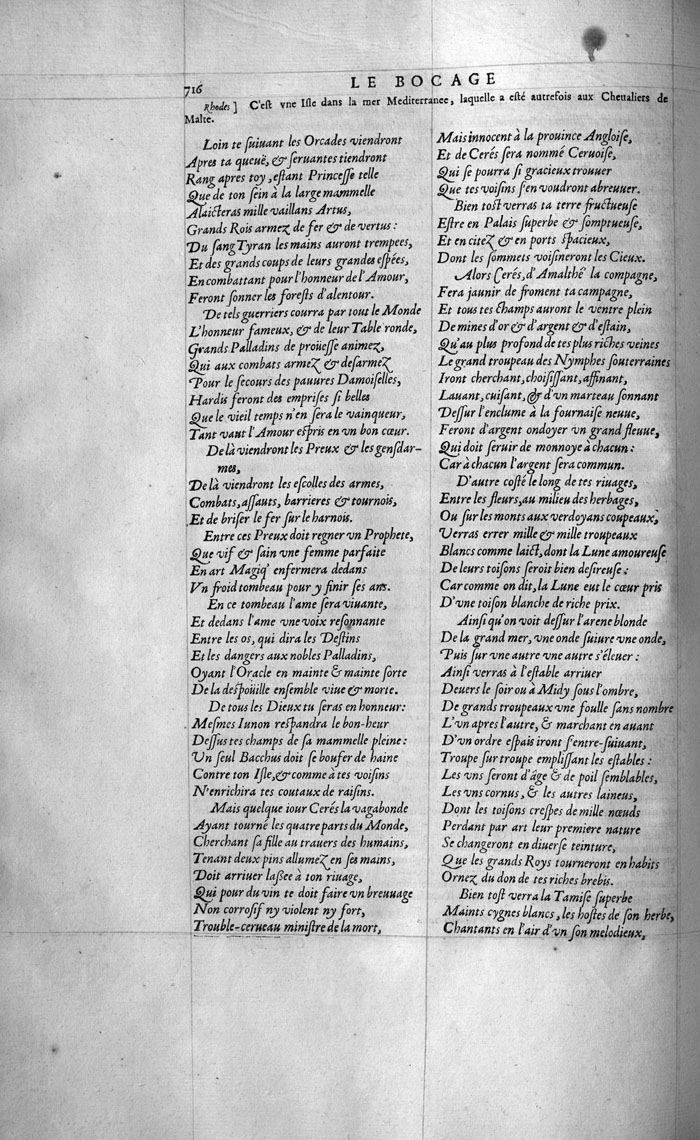 716
LE BOCAGE
Rhodes] C'est vne Isle dans la mer Mediterranee, laquelle a esté autrefois aux Cheualiers de
Malte.
Loin te suiuant les Orcades viendront
Apres ta queuë, & seruantes tiendront
Rang apres toy, estant Princesse telle
Que de ton sein à la large mammelle
Alaicteras mille vaillans Artus,
Grands Rois armez de fer & de vertus:
Du sang Tyran les mains auront trempees,
Et des grands coups de leurs grandes espées,
En combattant pour l'honneur de l'Amour,
Feront sonner les forests d'alentour.
De tels guerriers courra par tout le Monde
L'honneur fameux, & de leur Table ronde,
Grands Palladins de proüesse animez,
Qui aux combats armez & desarmez
Pour le secours des pauures Damoiselles,
Hardis feront des emprises si belles
Que le vieil temps n'en sera le vainqueur,
Tant vaut l'Amour espris en vn bon cœur.
De là viendront les Preux & les gensdar-
mes,
De là viendront les escolles des armes,
Combats, assauts, barrieres & tournois,
Et de briser le fer sur le harnois.
Entre ces Preux doit regner vn Prophete,
Que vif & sain vne femme parfaite
En art Magiq' enfermera dedans
Vn froid tombeau pour y finir ses ans.
En ce tombeau l'ame sera viuante,
Et dedans l'ame vne voix resonnante
Entre les os, qui dira les Destins
Et les dangers aux nobles Palladins,
Oyant l'Oracle en mainte & mainte sorte
De la despoüille ensemble viue & morte.
De tous les Dieux tu seras en honneur:
Mesmes Iunon respandra le bon-heur
Dessus tes champs de sa mammelle pleine:
Un seul Bacchus doit se boufer de haine
Contre ton Isle, & comme à tes voisins
N'enrichira tes coutaux de raisins.
Mais quelque iour Cerés la vagabonde
Ayant tourné les quatre parts du Monde,
Cherchant sa fille au trauers des humains,
Tenant deux pins allumez en ses mains,
Doit arriuer lassee à ton riuage,
Qui pour du vin te doit faire vn breuuage
Non corrosif ny violent ny fort,
Trouble-cerueau ministre de la mort,
Mais innocent à la prouince Angloise,
Et de Cerés sera nommé Ceruoise,
Qui se pourra si gracieux trouuer
Que tes voisins s'en voudront abreuuer.
Bien tost verras ta terre fructueuse
Estre en Palais superbe & somptueuse,
Et en citez & en ports spacieux,
Dont les sommets voisineront les Cieux.
Alors Cerés, d'Amalthé la compagne,
Fera jaunir de froment ta campagne,
Et tous tes champs auront le ventre plein
De mines d'or & d'argent & d'estain,
Qu'au plus profond de tes plus riches veines
Le grand troupeau des Nymphes souterraines
Iront cherchant, choisissant, affinant,
Lauant, cuisant, & d'vn marteau sonnant
Dessur l'enclume à la fournaise neuue,
Feront d'argent ondoyer vn grand fleuue,
Qui doit seruir de monnoye à chacun:
Car à chacun l'argent sera commun.
D'autre costé le long de tes riuages,
Entre les fleurs, au milieu des herbages,
Ou sur les monts aux verdoyans coupeaux,
Verras errer mille & mille troupeaux
Blancs comme laict, dont la Lune amoureuse
De leurs toisons seroit bien desireuse:
Car comme on dit, la Lune eut le cœur pris
D'vne toison blanche de riche prix.
Ainsi qu'on voit dessur l'arene blonde
De la grand mer, vne onde suiure vne onde,
Puis sur vne autre vne autre s'éleuer:
Ainsi verras à l'estable arriuer
Deuers le soir ou à Midy sous l'ombre,
De grands troupeaux vne foulle sans nombre
L'vn apres l'autre, & marchant en auant
D'vn ordre espais iront s'entre-suiuant,
Troupe sur troupe emplissant les estables:
Les vns seront d'âge & de poil semblables,
Les vns cornus, & les autres laineus,
Dont les toisons crespes de mille nœuds
Perdant par art leur premiere nature
Se changeront en diuerse teinture,
Que les grands Roys tourneront en habits
Ornez du don de tes riches brebis.
Bien tost verra la Tamise superbe
Maints cygnes blancs, les hostes de son herbe,
Chantants en l'air d'vn son melodieux,